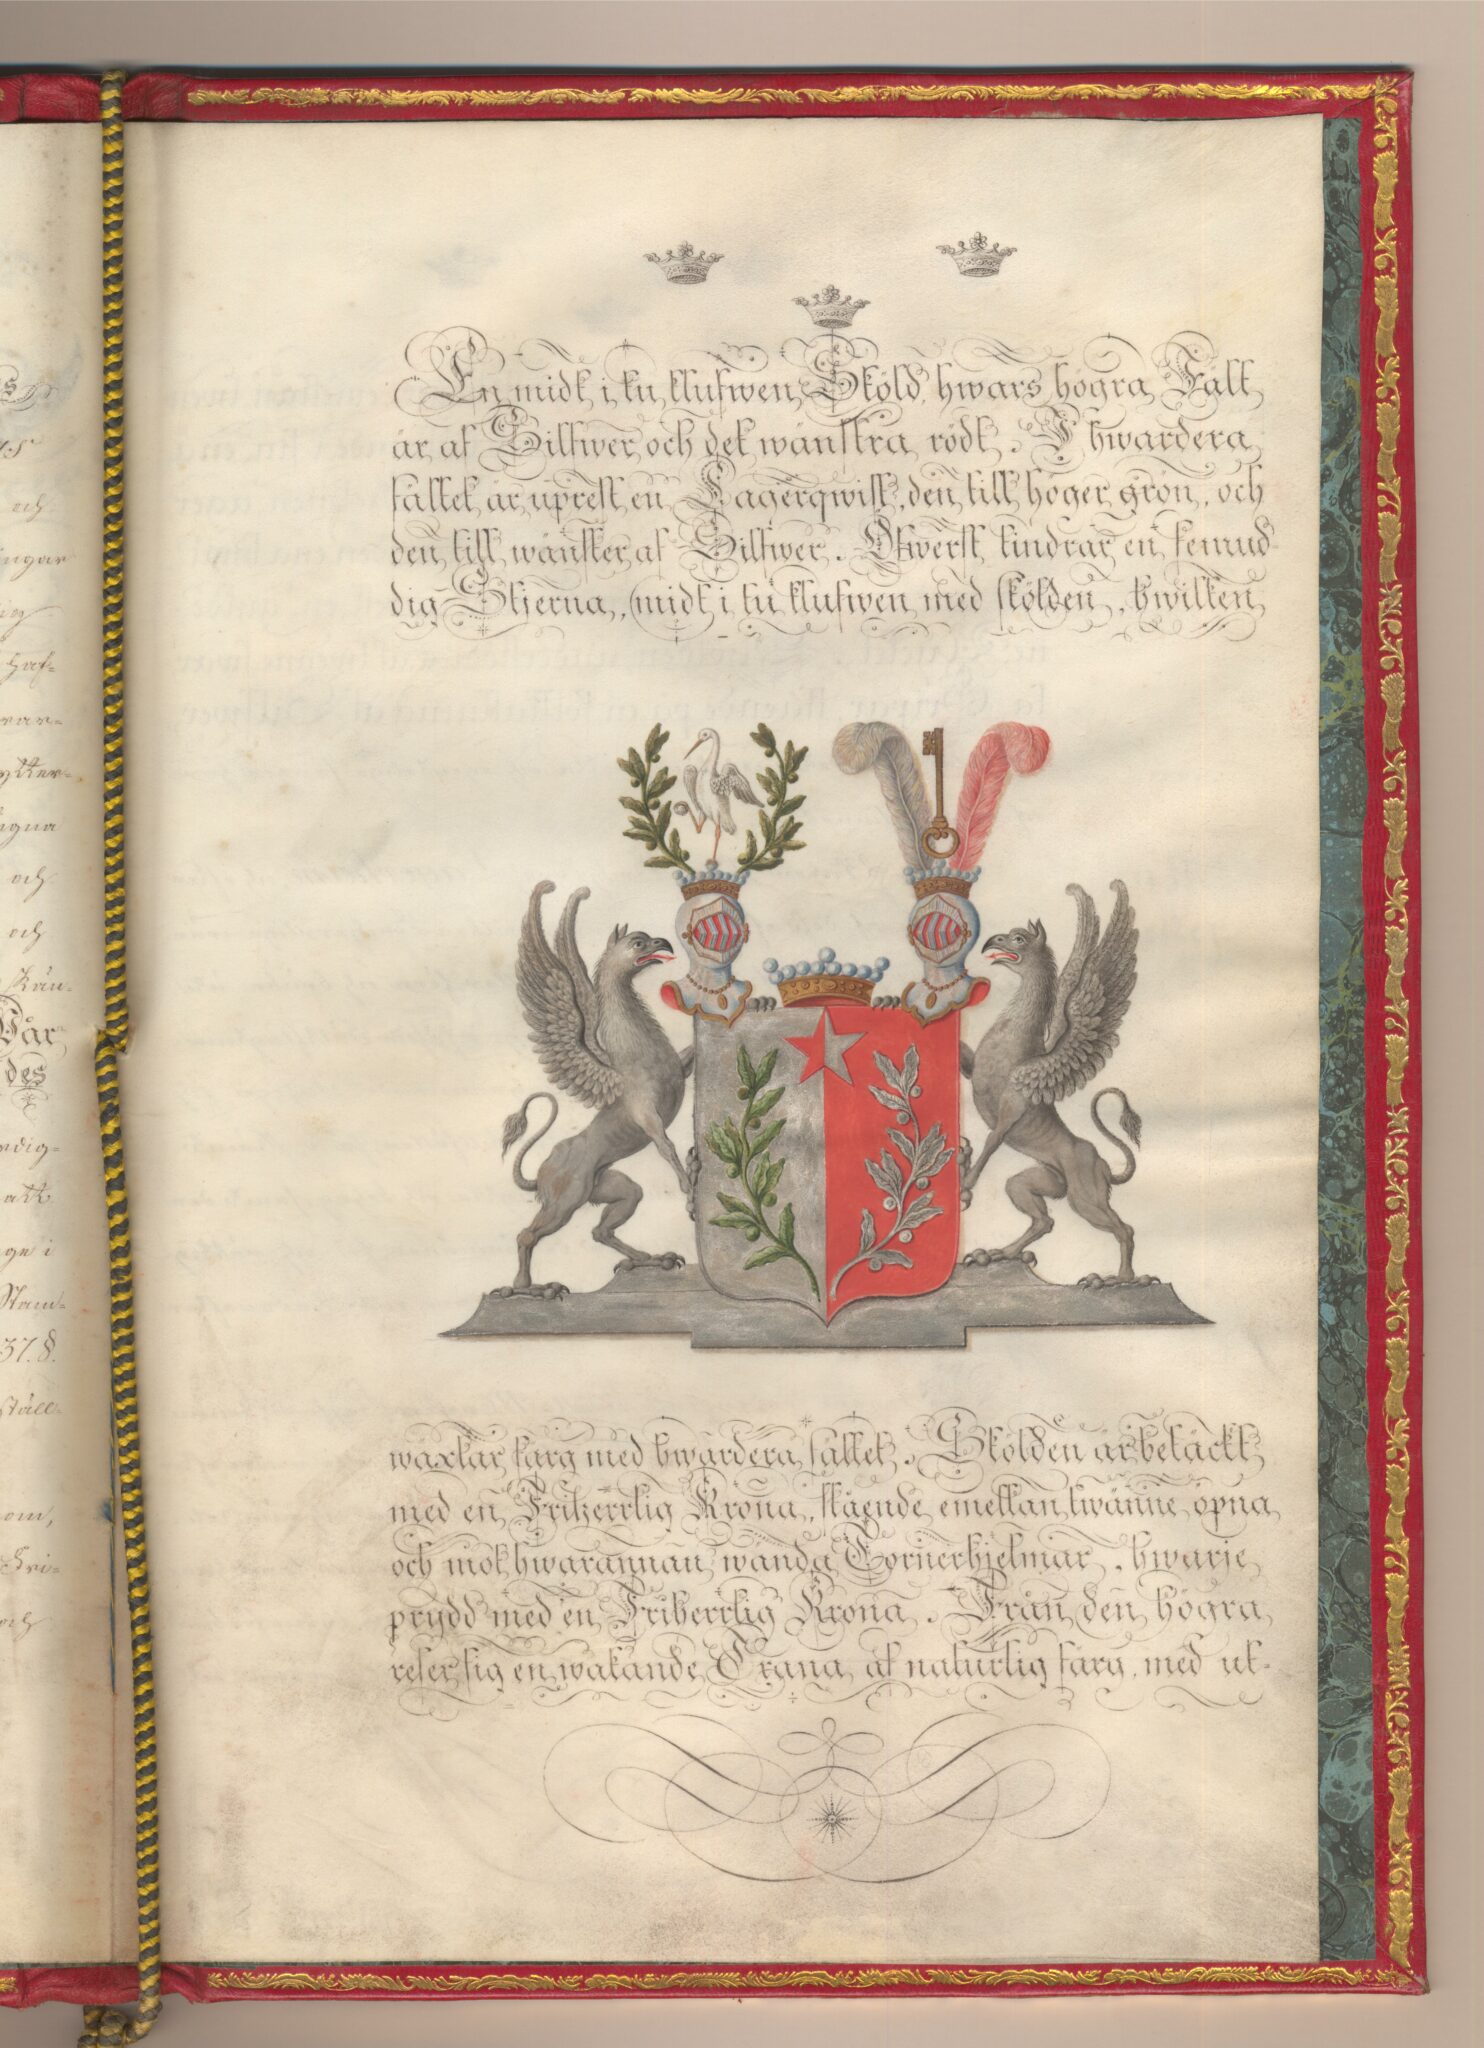 s
us
och
ingar
ig
haf-
rar-
ytter-
ägna
och
och
Kän-
Vår
des
ndig-
att
ge i
Stam-
37. §.
ställ-
om,
och
En midt i tu klufwen Sköld, hwars högra Fält
är af Silfwer och det wänstra rödt. I hwardera
fältet är uprest en Lagerqwist, den till höger grön, och
den till wänster af Silfwer. Öfwerst tindrar en femud-
dig Stjerna, midt i tu klufwen med skölden, hwilken
waxlar färg med hwardera fältet. Skölden är betäckt
med en Friherrlig Krona, stående emellan twänne öpna
och mot hwarannan wända Tornerhjelmar, hwarje
prydd med en Friherrlig Krona. Från den högra
reser sig en wakande Trana, af naturlig färg, med ut-